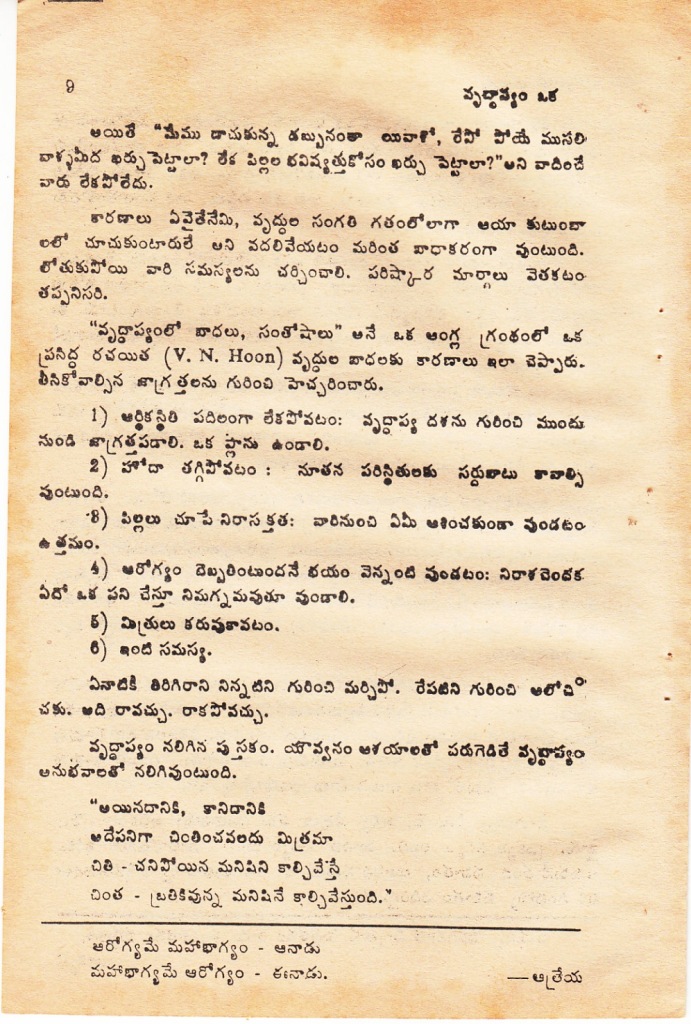 9
వృద్ధాప్యం ఒక
అయితే "మేము దాచుకున్న డబ్బునంతా యివాళో, రేపో పోయే ముసలి
వాళ్ళమీద ఖర్చుపెట్టాలా? లేక పిల్లల భవిష్యత్తుకోసం ఖర్చు పెట్టాలా?" అని వాదించే
వారు లేకపోలేదు.
కారణాలు ఏవైతేనేమి, వృద్ధుల సంగతి గతంలోలాగా ఆయా కుటుంబా
లలో చూచుకుంటారులే అని వదలివేయటం మరింత బాధాకరంగా వుంటుంది.
లోతుకుపోయి వారి సమస్యలను చర్చించాలి. పరిష్కార మార్గాలు వెతకటం
తప్పనిసరి.
"వృద్ధాప్యంలో బాధలు, సంతోషాలు" అనే ఒక ఆంగ్ల గ్రంథంలో ఒక
ప్రసిద్ధ రచయిత (V. N. Hoon) వృద్ధుల బాధలకు కారణాలు ఇలా చెప్పారు.
తీసికోవాల్సిన జాగ్రత్తలను గురించి హెచ్చరించారు.
1) ఆర్థికస్థితి పదిలంగా లేకపోవటం: వృద్ధాప్య దశను గురించి ముందు
నుండి జాగ్రత్తపడాలి. ఒక ప్లాను ఉండాలి.
2) హోదా తగ్గిపోవటం : నూతన పరిస్థితులకు సర్దుబాటు కావాల్సి
వుంటుంది.
3) పిల్లలు చూపే నిరాసక్తత: వారినుంచి ఏమీ ఆశించకుండా వుండటం
ఉత్తమం.
4) ఆరోగ్యం దెబ్బతింటుందనే భయం వెన్నంటి వుండటం: నిరాశచెందక
ఏదో ఒక పని చేస్తూ నిమగ్నమవుతూ వుండాలి.
5) మిత్రులు కరువుకావటం.
6) ఇంటి సమస్య.
ఏనాటికీ తిరిగిరాని నిన్నటిని గురించి మర్చిపో. రేపటిని గురించి ఆలోచిం
చకు. అది రావచ్చు. రాకపోవచ్చు.
వృద్ధాప్యం నలిగిన పుస్తకం. యౌవ్వనం ఆశయాలతో పరుగెడితే వృద్ధాప్యం
అనుభవాలతో నలిగివుంటుంది.
"అయినదానికి, కానిదానికి
అదేపనిగా చింతించవలదు మిత్రమా
చితి - చనిపోయిన మనిషిని కాల్చివేస్తే
చింత - బ్రతికివున్న మనిషినే కాల్చివేస్తుంది."
ఆరోగ్యమే మహాభాగ్యం - ఆనాడు
మహాభాగ్యమే ఆరోగ్యం - ఈనాడు.
— ఆత్రేయ